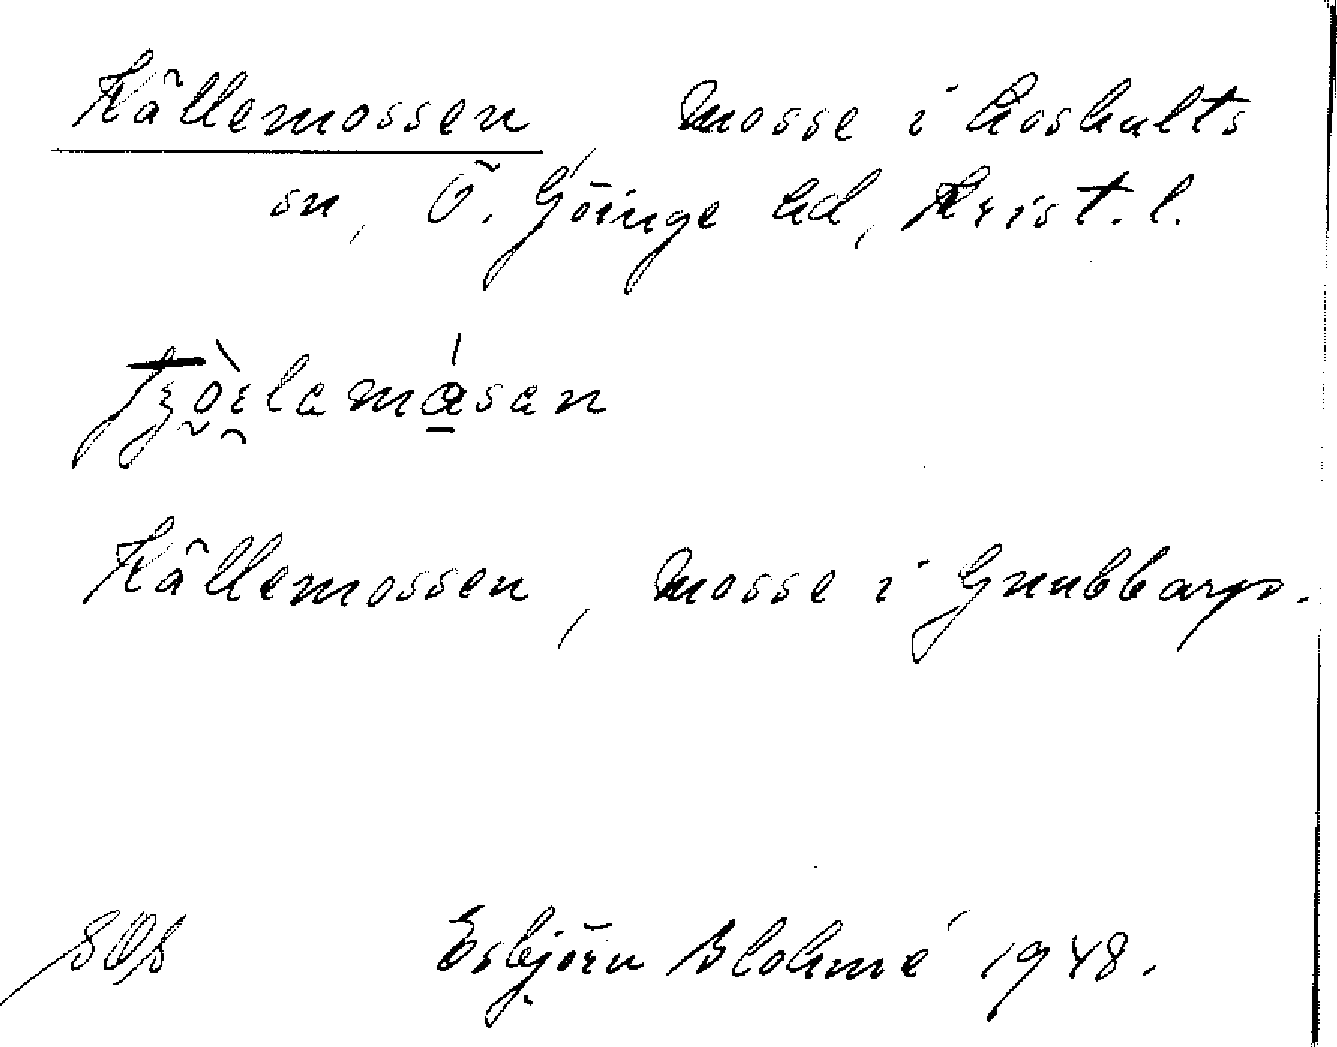 Källemossen, Mosse i Loshults
sn, Ö. Göinge hd, Krist. l.
Källemossen, Mosse i Gnubbarp.
Esbjörn Blohmé 1948.